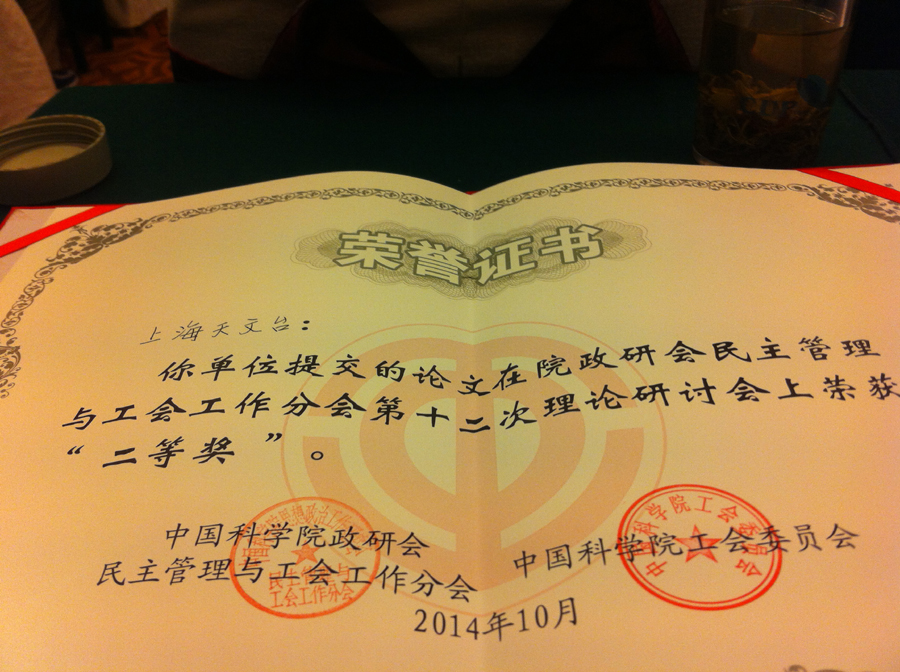 荣誉证书
上海天文台：
你单位提交的论文在院政研会民主管理
与工会工作分会第十二次理论研讨会上荣获
“二等奖”。
中国科学院政研会
民主管理与工会工作分会
中国科学院工会委员会
2014年10月
民主管理与
工会工作分会
中国科学院工会委员会